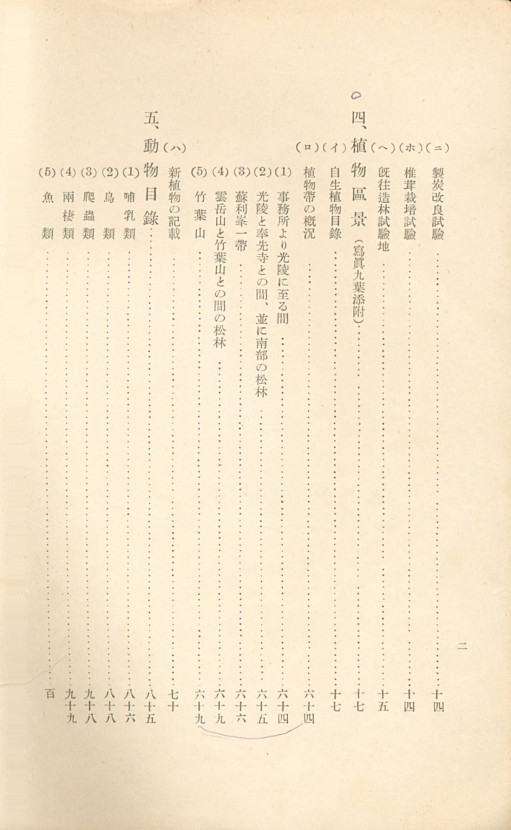 (ニ) 製炭改良試驗 十四
(ホ) 椎茸栽培試驗 十四
(ヘ) 旣往造林試驗地 十五
四、植物區景(寫眞九葉添附) 十七
(イ) 自生植物目錄 十七
(ロ) 植物帶の槪況 六十四
(1) 事務所より光陵に至る間 六十四
(2) 光陵と奉先寺との間、並に南部の松林 六十五
(3) 蘇利峯一帶 六十六
(4) 雲岳山と竹葉山との間の松林 六十九
(5) 竹葉山 六十九
(ハ) 新植物の記載 七十
五、動物目錄 八十五
(1) 哺乳類 八十六
(2) 鳥類 八十八
(3) 爬蟲類 九十八
(4) 兩棲類 九十九
(5) 魚類 百
二